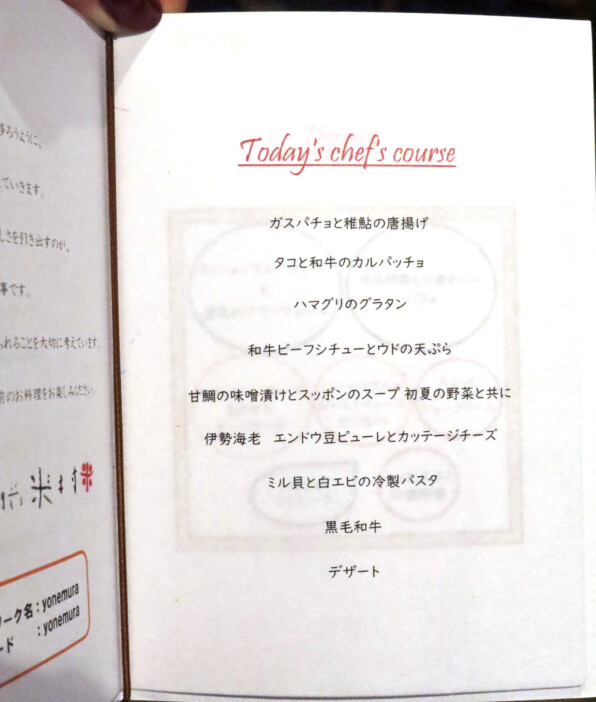 ていきます。
しさを引き出すのが、
事です。
られることを大切に考えています。
前のお料理をお楽しみください。
米村
ワーク名：yonemura
ード　：yonemura
Today's chef's course
ガスパチョと稚鮎の唐揚げ
タコと和牛のカルパッチョ
ハマグリのグラタン
和牛ビーフシチューとウドの天ぷら
甘鯛の味噌漬けとスッポンのスープ 初夏の野菜と共に
伊勢海老　エンドウ豆ピューレとカッテージチーズ
ミル貝と白エビの冷製パスタ
黒毛和牛
デザート